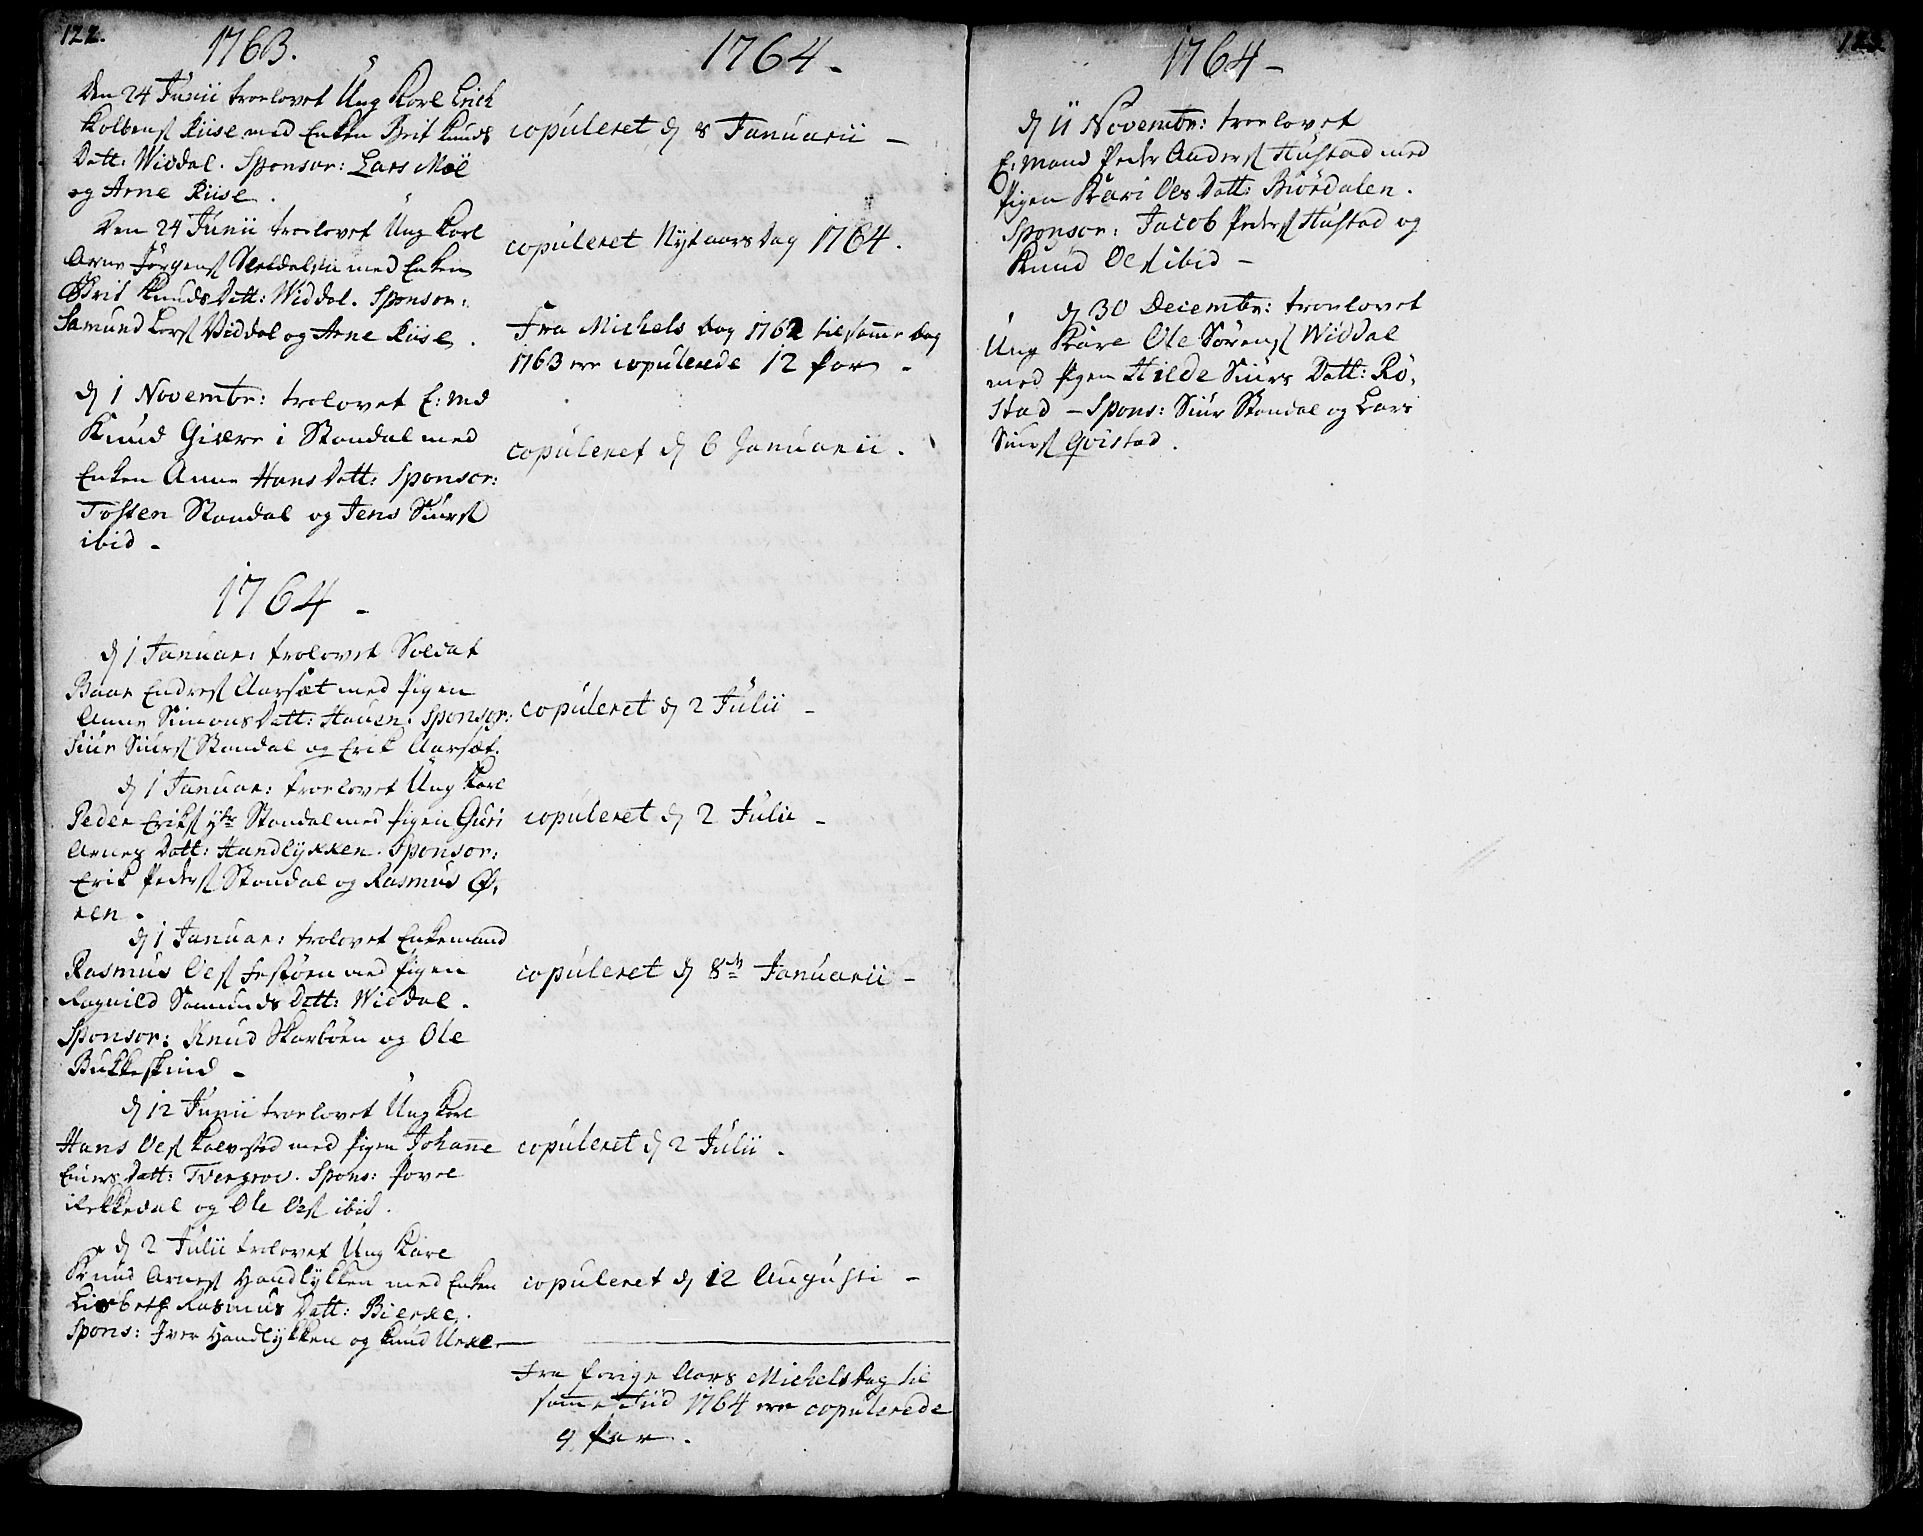 122.
1763.
Den 24 Junii troelovet Ung Karl Erich
Kolbens Riise med Enken Brit Knuds
Datt: Widdal. Sponsor: Lars Moe
og Arne Riise.
Den 24 Junii troelovet Ung Karl
Arne Jörgens med Enken
Brit Knuds Datt: Widdal. Sponsor:
Samund Lars Widdal og Arne Riise.
d 1 Novembr: trolovet E: Md
Knud Giære i Standal med
Enken Anne Hans Datt: Sponsor:
Tosten Standal og Jens Siurs
ibid -
1764 -
d 1 Januar: trolovet Soldat
Baar Endres Aarsæt med Pigen
Anne Simons Datt: Hauen. Sponsor:
Siur Siurs Standal og Erik Aarsæt.
d 1 Januar: troelovet Ung Karl
Peder Eriks Standal med Pigen Guri
Arnes Datt: Handlykken. Sponsor:
Erik Peders Standal og Rasmus Ø,
ren.
d 1 Januar: trolovet Enkemand
Rasmus Oles Festöen med Pigen
Ragnild Samunds Datt: Widdal.
Sponsor: Knud Skarböen og Ole
Bukkeskind -
d 12 Junii troelovet Ung Karl
Hans Oles Kalvstad med Pigen Johanne
Einers Datt: Tvergrov. Spons: Povel
iRekkedal og Ole Oles ibid.
d 2 Julii trolovet Ung Karl
Knud Arnes Handlykken med Enken
Lisbeth Rasmus Datt: Bierke.
Spons: Iver Handlykken og Knud Urke.
1764 -
copuleret d 8 Januarii -
copuleret Nytaars Dag 1764.
Fra Michels Dag 1762 til samme dag
1763 ere copulerede 12 Par -
copuleret d 6 Januarii.
copuleret d 2 Julii -
copuleret d 2 Julii -
copuleret d 8de Januarii -
copuleret d 2 Julii.
copuleret d 12 Augusti -
Fra forige Aars Michelsdag til
samme Tiid 1764 ere copulerede
9 Par.
1764 -
d 11 Novembr: troelovet
E: Mand Peder Anders Hustad med
Pigen Kari Oles Datt: Biördalen.
Sponsor: Jacob Peders Hustad og
Knud Oles ibid -
d 30 Decembr: troelovet
Ung Karl Ole Sörens Widdal
med Pigen Hilde Siurs Datt: Rö,
stad - Spons: Siur Standal og Lars
Siurs Qvistad.